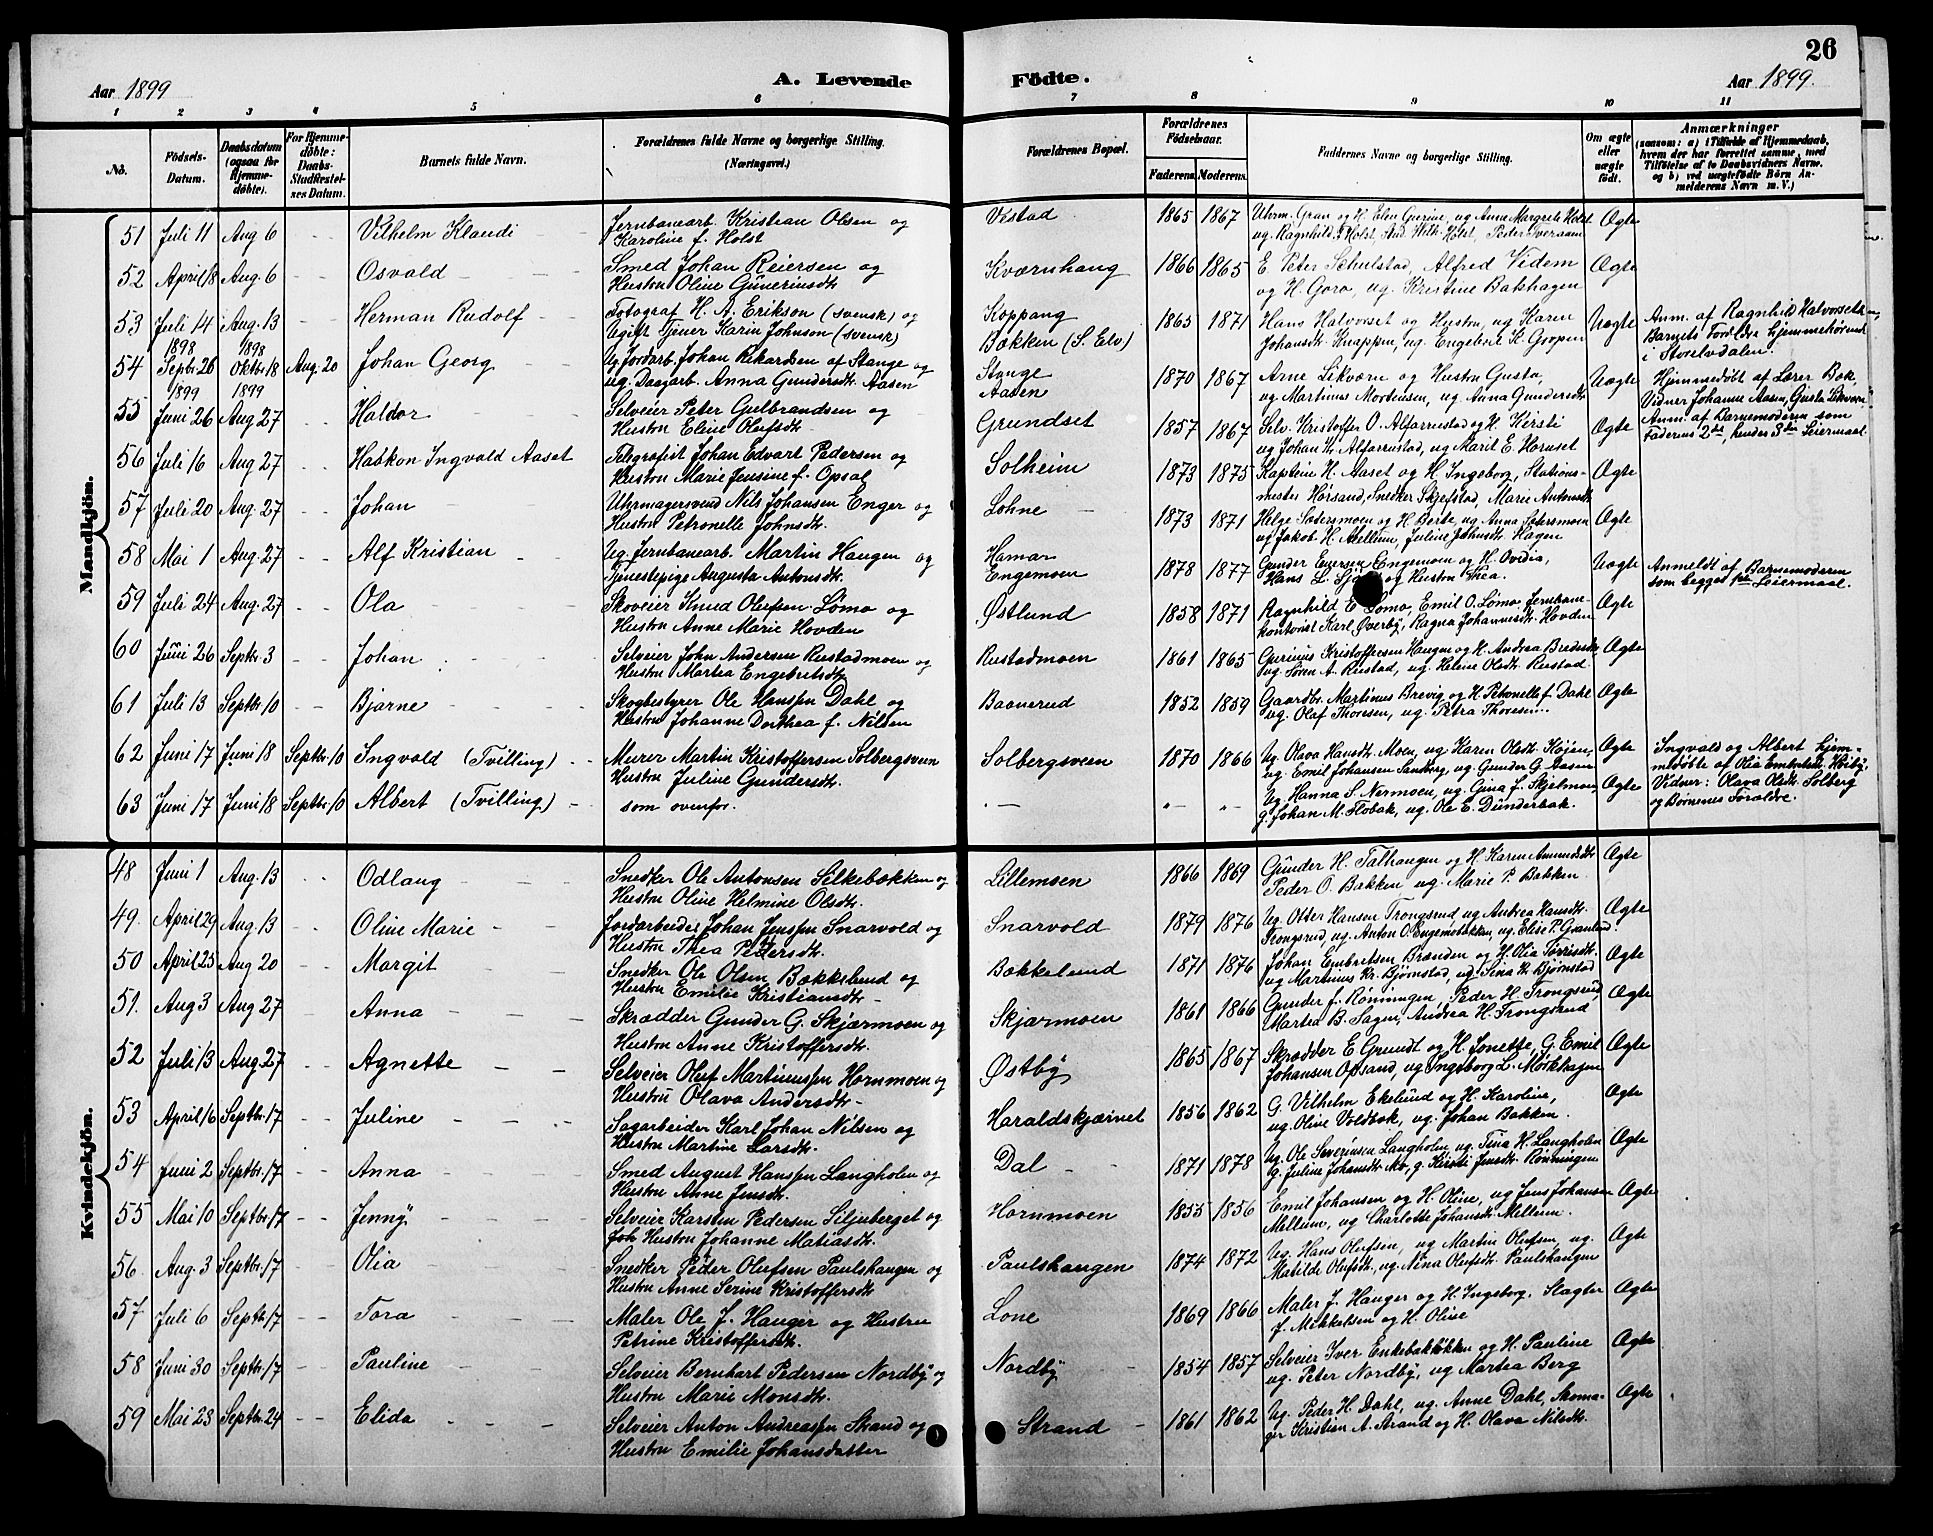 26
Aar 1899
A. Levende
Födte.
Aar 1899.
1 2 3 4 5 6 7 8 9 10 11
No.
Födsels-Datum.
Daabsdatum (ogsaa for Hjemme-döbte).
For Hjemme-döbte: Daabs-Stadfæstel-ses Datum.
Barnets fulde Navn.
Forældrenes fulde Navne og borgerlige Stilling. (Næringsvei.)
Forældrenes Bopæl.
Forældrenes Födselsaar.
Faderens. Moderens.
Faddernes Navne og borgerlige Stilling.
Om ægte eller uægte födt.
Anmærkninger
(saasom: a) i Tilfælde af Hjemmedaab, hvem der har forrettet samme, med Tilföielse af to Daabsvidners Navne, og b) ved uægtefödte Börn An-melderens Navn m. V.)
Mandkjön.
51 Juli 11 Aug 6 Vilhelm Klaudi Jernbanearb. Kristian Olsen og Vestad 1865 1867 Uhrm. Gran og H. Elen Gurine, ug. Anne Margrete Holst Ægte
Karoline f. Holst ug. Ragnhild Holst, Stud. Wilh. Holst, Peder Iversen
52 April 18 Aug. 6 Osvald Smed Johan Reiersen og Kværnhaug 1866 1865 E. Peter Schulstad, Alfred Videm Ægte
Hustru Oline Guneriusdt. og H. Goro, ug. Kristine Bakhagen
53 Juli 14 Aug. 13 Herman Rudolf Fotograf H. A. Erikson (svensk) og Koppang 1865 1871 Hans Halvorset og Hustru, ug Karen Uægte Anm. af Ragnhild Halvorset
Ugift Tjener Karin Johnson (svensk) Bækken (S. Elv) Johansdt. Knappen, ug. Engebret K. Gropen Barnets Forældre hjemmehørende
1898 1898
i Storelvdalen.
54 Septbr. 26 Oktbr 18 Aug. 20 Johan Georg Ug. Jordarb. Johan Rikardsen af Stange og Stange 1870 1867 Arne Likværn og Hustru Gusta, Uægte Hjemmedøbt af Lærer Bak,
ug. Dagarb. Anna Gundersdt. Aasen Aasen ug Martinus Mortensen, ug Anna Gundersdt. Vidner Johanne Aasen, Gusta Likværn.
1899 1899
55 Juni 26 Aug. 27 Haldor Selveier Peter Gulbrandsen og Grundset 1857 1867 Selv. Kristoffer O. Alfarrustad og H. Kirsti Ægte Anm. af Barnemoderen som
Hustru Eline Olufsdt. ug Johan Kr. Alfarrustad, ug Marit E. Horuset Faderens 2det, hendes 3die Leiermaal.
56 Juli 16 Aug. 27 Haakon Ingvald Aaset Telegrafist Johan Edvart Pedersen og Solheim 1873 1875 Kaptein H. Aaset og H. Ingeborg, Stations- Ægte
Hustru Marie Jensine f. Opsal mester Hørsand, Snedker Skjefstad, Marie Antonsdt.
57 Juli 20 Aug. 27 Johan Uhrmagersvend Nils Johansen Enger og Lohne 1873 1871 Helge Sætersmoen og H. Berte, ug. Anna Sætersmoen Ægte
Hustru Petronelle Johnsdt. ug Jakob H. Mellum, Juline Johnsdt. Hagen
58 Mai 1 Aug. 27 Alf Kristian Ug. Jernbanearb. Martin Haugen og Hamar 1878 1877 Gunder Evensen Engemoen og H. Ovidia, Uægte Anmeldt af Barnemoderen
Tjenestepige Augusta Antonsdt. Engemoen Hans L. og Hustru Thea. som begges 1ste Leiermaal.
59 Juli 24 Aug. 27 Ola Skoveier Knud Olufsen Lømo og Østlund 1858 1871 Ragnhild E Lømo, Emil O. Lømo, Jernbane- Ægte
Hustru Anne Marie Hovden kontorist Karl Øverby, Ragna Johannesdt. Hovden
60 Juni 26 Septbr. 3 Johan Selveier John Andersen Rustadmoen og Rustadmoen 1861 1865 Gurinius Kristoffersen Haugen og H. Andrea Bredesdt. Ægte
Hustru Martea Engebretsdt. ug. Søren A. Rustad, ug. Helene Olsdt. Rustad.
61 Juli 13 Septbr. 10 Bjarne Skogbestyrer Ole Hanssen Dahl og Baanerud 1852 1859 Gaardbr. Martinus Brevig og H. Petronelle f. Dahl Ægte
Hustru Johanne Dorthea f. Nilsen ug. Olaf Thoresen, ug. Petra Thoresen.
62 Juni 17 Juni 18 Septbr. 10 Ingvald (Tvilling) Murer Martin Kristoffersen Solbergsveen Solbergsveen 1870 1866 Ug. Olava Hansdt. Moen, ug Karen Olsdt. Køjen, Ægte Ingvald og Albert hjem-
Hustru Juline Gundersdt. ug. Emil Johansen Sandberg, ug. Gunder G. Aasen medøbte af Olia Embretsen Høiby,
63 Juni 17 Juni 18 Septbr. 10 Albert (Tvilling) som ovenfor. — „ – „ – Ug. Hanna S. Nermoen, ug. Gina f. Skjelmoen, Ægte Vidner: Olava Olsdt. Solberg
g. Johan M. Flobak, ug. Ole E. Dunderbak. og Børnenes Forældre.
Kvindekjön.
48 Juni 1 Aug. 13 Odlaug Snedker Ole Antonsen Silkebækken og Lillemoen 1866 1869 Gunder H. Talhaugen og H. Karen Amundsdt. Ægte
Hustru Oline Helmine Olsdt. Peder O. Bakken, ug. Marie P. Bakken.
49. April 29 Aug. 13 Oline Marie Jordarbeider Johan Jenssen Snarvold og Snarvold 1879 1876 Ug. Otter Hansen Trongsrud ug Andrea Hansdt. Ægte
Hustru Thea Pedersdt. Trongsrud, ug. Anton O. Engemobakken, ug. Elise P. Granlund.
50 April 25 Aug 20 Margit Snedker Ole Olsen Bækkelund og Bækkelund 1871 1876 Johan Embretsen Brænden og H. Olia Torrisdt. Ægte
Hustru Emilie Kristiansdt. ug Martinus Kr. Bjørnstad, ug Sina K. Bjørnstad
51. Aug 3 Aug 27 Anna Skrædder Gunder G. Skjærmoen og Skjærmoen 1861 1866 Gunder f. Rønningen, Peder H. Trongsrud, Ægte
Hustru Anne Kristoffersdt. Martea B. Sagen, Andrea H. Trongsrud
52 Juli 13 Aug. 27 Agnette Selveier Oluf Martinussen Hornmoen og Østby 1865 1867 Skrædder E Grundt og H. Jonette, G. Emil Ægte
Hustru Olava Andersdt. Johansen Opsand, ug Ingeborg L. Mørkhagen
53 April 16 Septbr. 17 Juline Sagarbeider Karl Johan Nilsen og Haraldskjærnet 1856 1862 G. Vilhelm Ekelund og H. Karoline, Ægte
Hustru Martine Larsdt. ug. Oline Voldbak, ug. Johan Bakken.
54 Juni 2 Septbr. 17 Anna Smed August Hanssen Langholen og Dal 1871 1878 Ug. Ole Severinsen Langholen, ug. Tina H. Langholen Ægte
Hustru Anne Jensdt. g. Juline Johansdt. Mo, g. Kirsti Jensdt. Rønningen
55 Mai 10 Septbr. 17 Jenny Selveier Karsten Pedersen Siljuberget og Hornmoen 1855 1856 Emil Johansen og H. Oline, ug Jens Johansen Ægte
Joh Hustru Johanne Matiasdt. Mellum, ug Charlotte Johansdt. Mellum.
56. Aug. 3 Septbr. 17 Olia Snedker Peder Olufsen Paulshaugen og Paulshaugen 1874 1872 Ug. Hans Olufsen, ug Martin Olufsen, ug. Ægte
Hustru Anne Serine Kristoffersdt. Matilde Olufsdt., ug. Nina Olufsdt. Paulshaugen
57 Juli 6 Septbr. 17 Tora Maler Ole J. Hauger og Hustru Lone 1869 1866 Maler J. Hauger og H. Ingeborg, Slagter Ægte
Petrine Kristoffersdt. f. Mikkelsen og H. Oline
58 Juni 30 Septbr. 17 Pauline Selveier Bernhart Pedersen Nordby og Nordby 1854 1857 Selveier Iver Enkebakløkken og H. Pauline Ægte
Hustru Marie Monsdt. ug. Peter Nordby, ug Martea Berg
59 Mai 23 Septbr. 24 Elida Selveier Anton Andreassen Strand og Strand 1861 1862 Ug. Peder H. Dahl, ug. Anne Dahl, Skoma- Ægte
Hustru Emilie Johansdatter ger Kristian A. Strand og H. Olava Nilsdt.